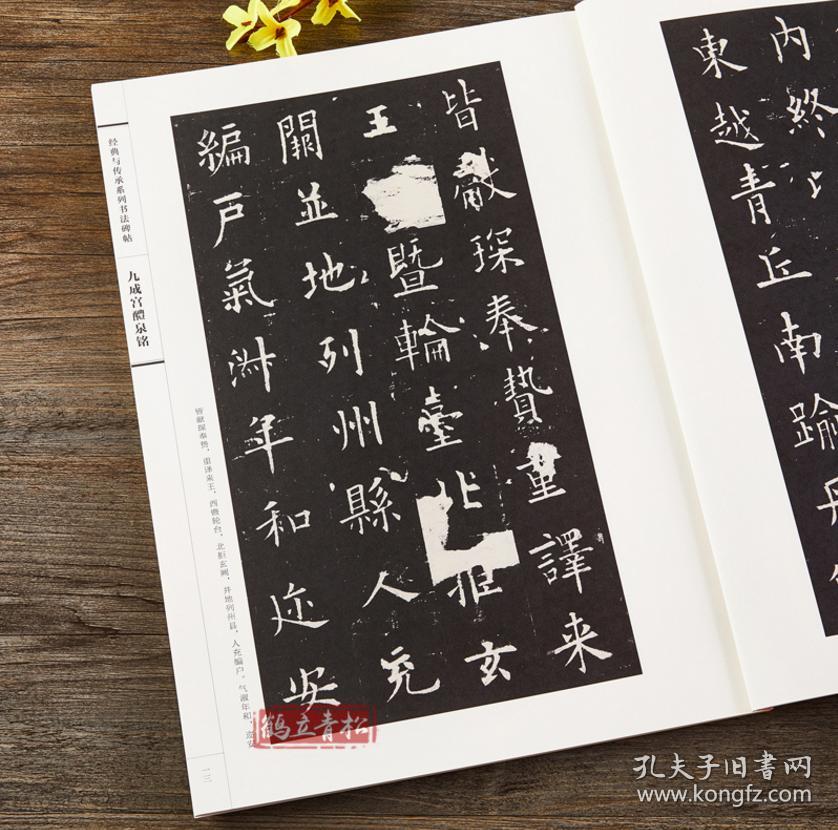 内終
東越青丘南踰丹
皆獻琛奉贄重譯来
王暨輪臺北拒玄
闕並地列州縣人充
編戶氣淑年和迩安
经典与传承系列书法碑帖
九成宫醴泉铭
皆献琛奉贽，重译来王，西暨轮台，北拒玄阙，并地列州县，人充编户。气淑年和，迩安
一三
鹤立青松
孔夫子旧書网
www.kongfz.com